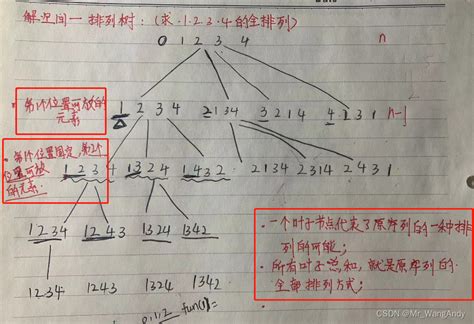 解空间一 排列树:(求·1·2·3·4的全排列)
0 1 2 3 4 n
第1个位置可放的
元素
1 2 3 4 2 1 3 4 3 2 1 4 4 2 3 1 n-1
第1个位置固定,第2个
位置可放
的元素.
1 2 3 4 1 3 2 4 1 4 3 2 2 1 3 4 2 3 1 4 2 4 3 1
1 2 3 4 1 2 4 3 1324 1342
1234 1243 1324 1342
一个叶子节点代表了原序列的一种排
列的可能;
所有叶子点和,就是原序列的
全部排列方式;
0,1,1,2 fun()
CSDN @Mr_WangAndy